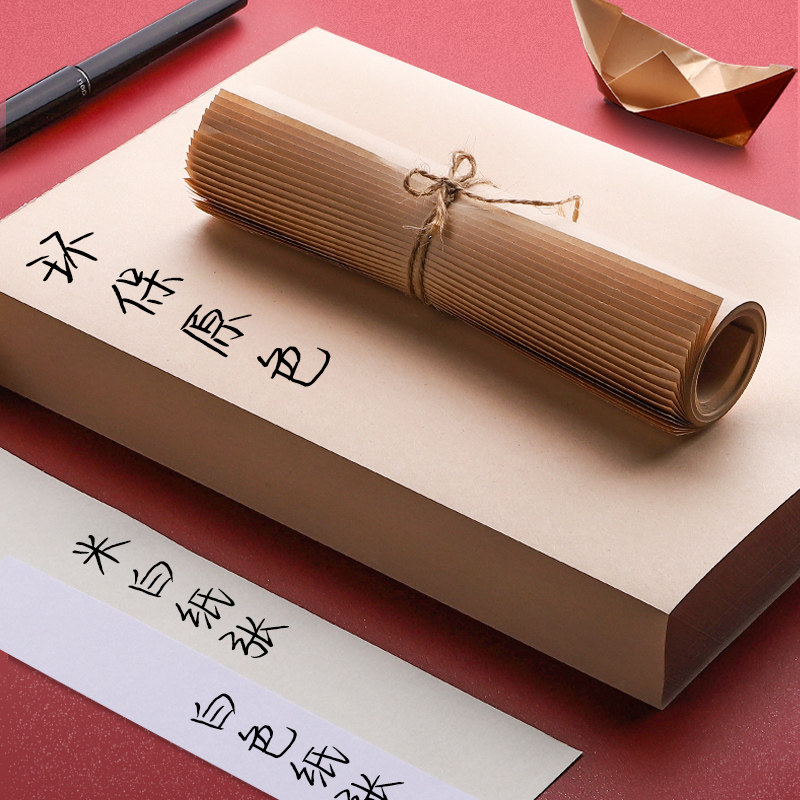 deli
环保原色
米白纸张
白色纸张